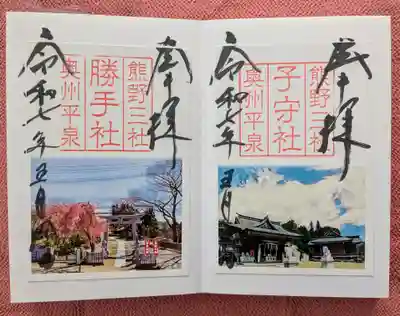 奉拝
熊野三社
勝手社
奥州平泉
令和七年五月
奉拝
熊野三社
子守社
奥州平泉
令和七年五月